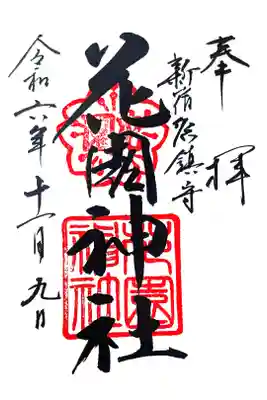 奉拝
新宿総鎮守
花園神社
令和六年十一月九日
花園
神社